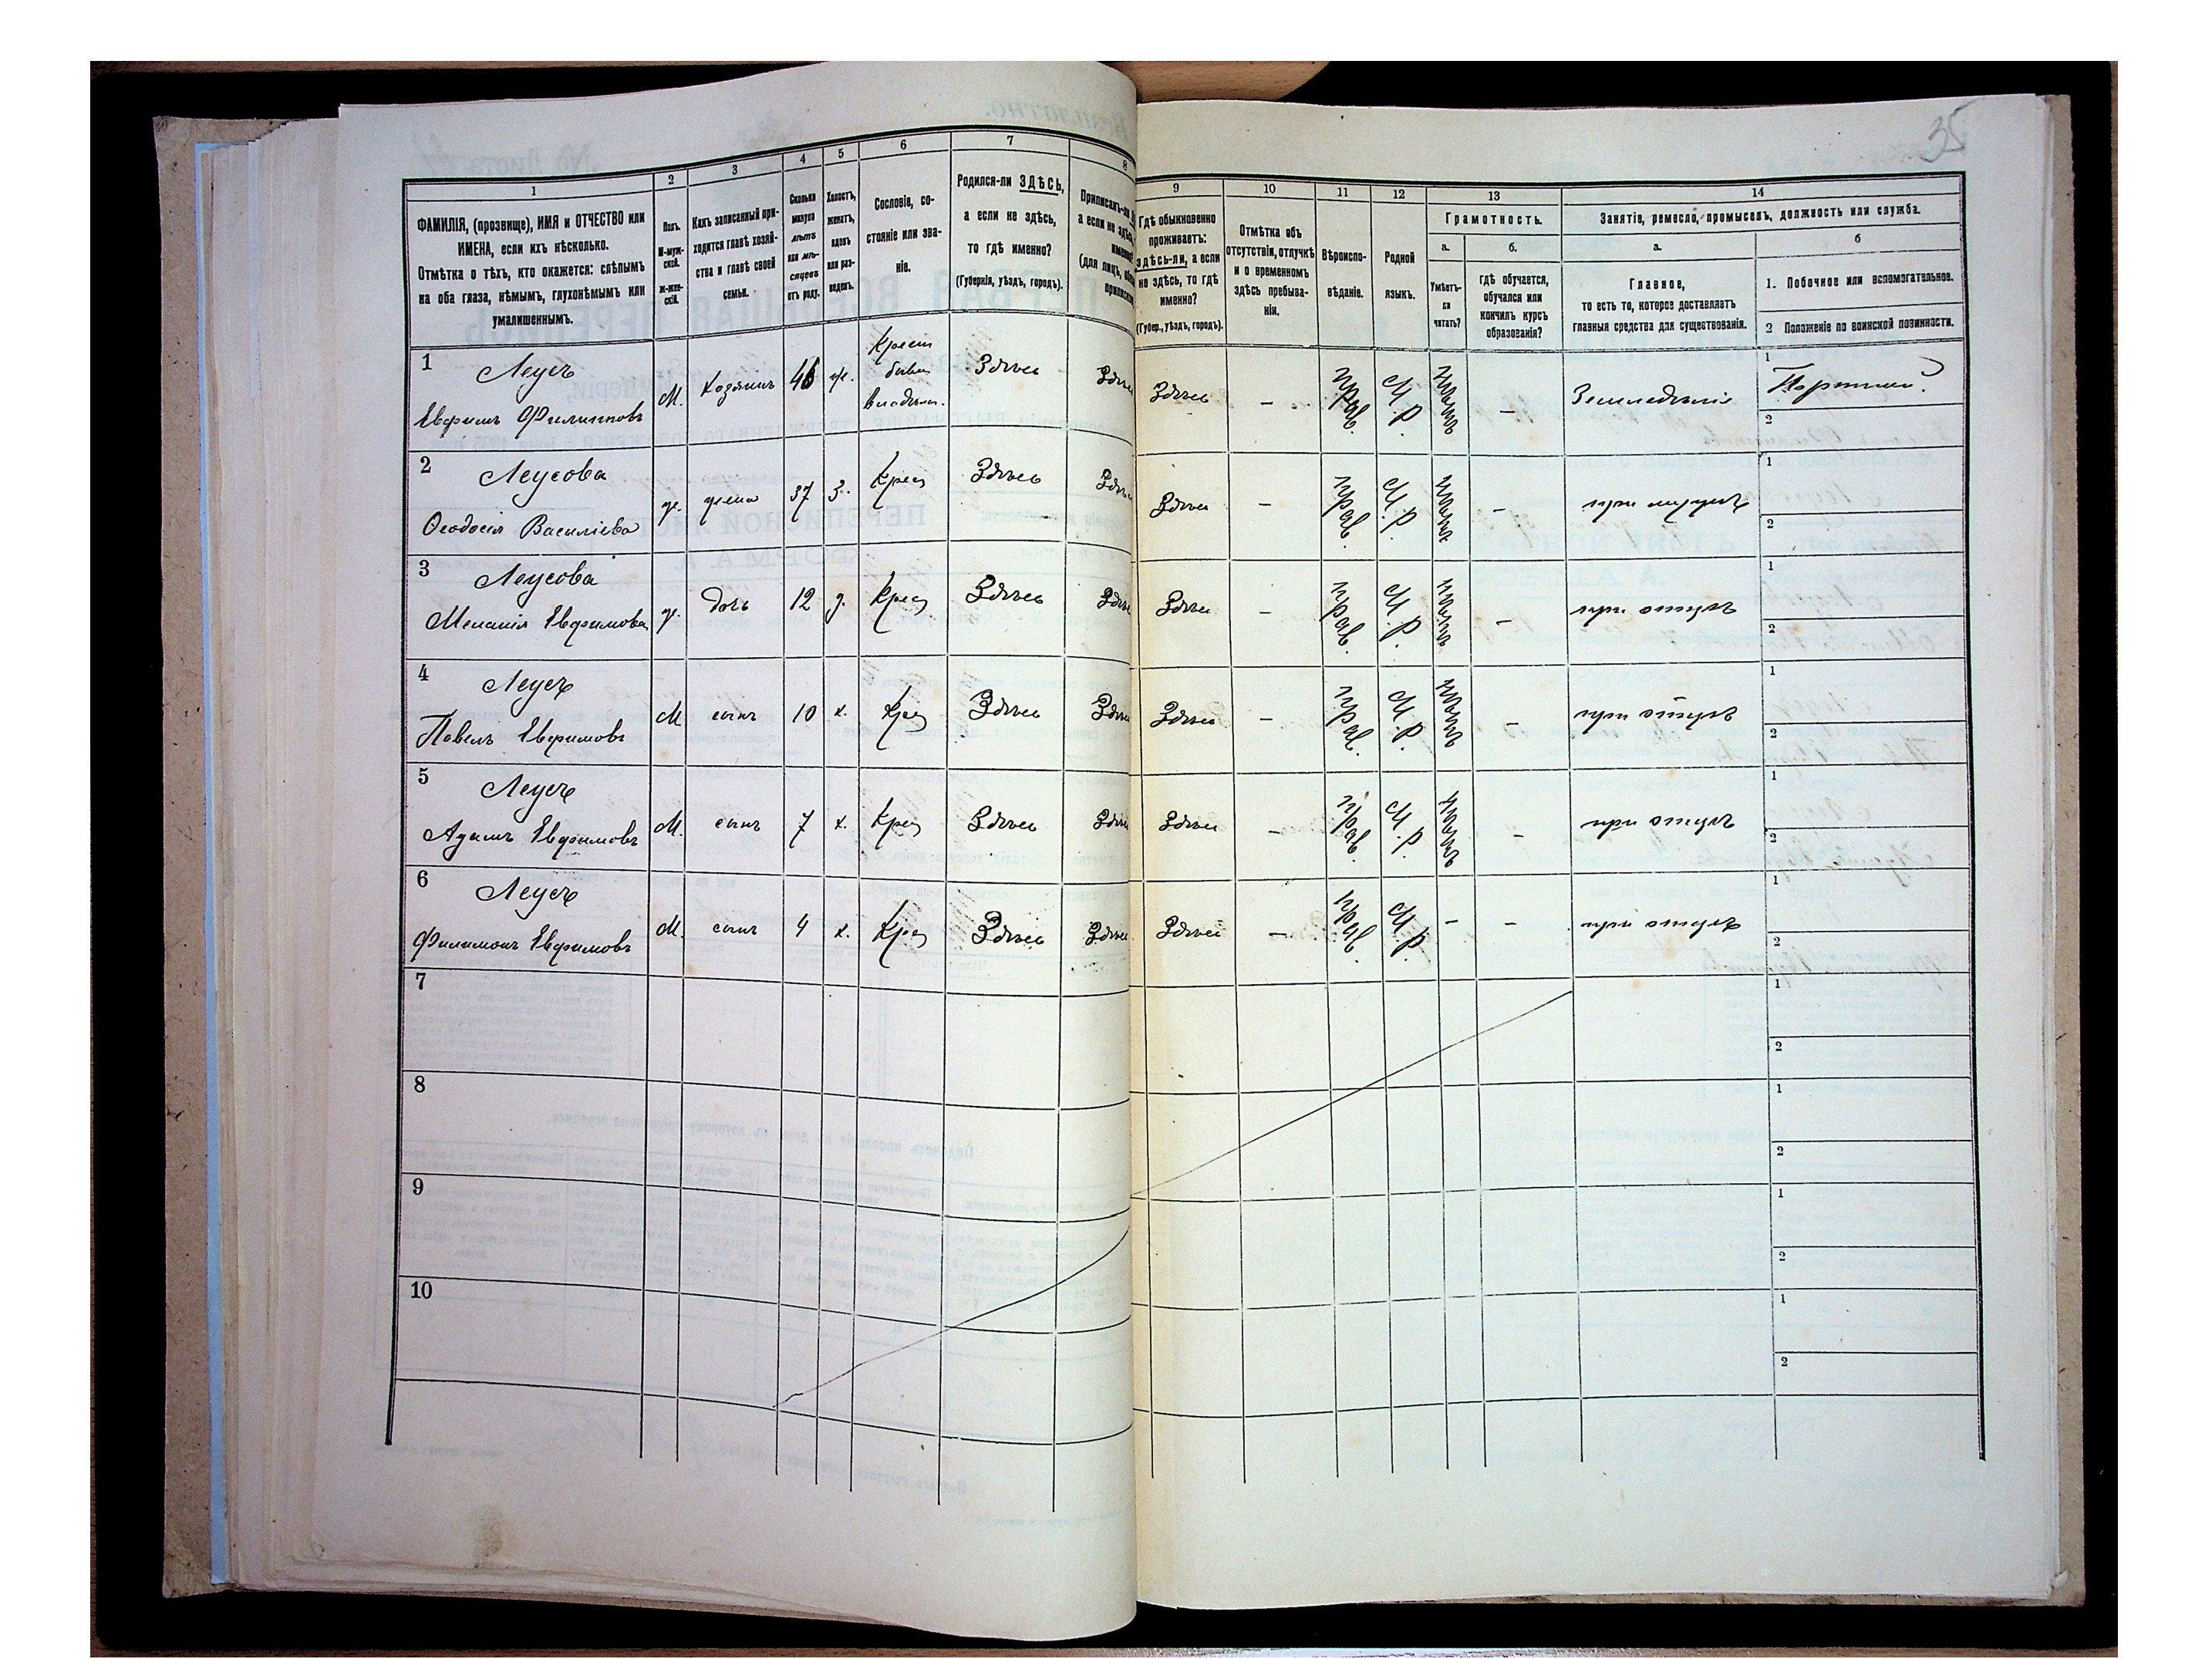 35
1
2
3
4
5
6
7
8
9
10
11
12
13
14
ФАМИЛІЯ, (прозвище), ИМЯ и ОТЧЕСТВО или
ИМЕНА, если ихъ нѣсколько.
Отмѣтка о тѣхъ, кто окажется: слѣпымъ
на оба глаза, нѣмымъ, глухонѣмымъ или
умалишеннымъ.
Полъ.
М-муж-
ской.
ж-жен-
скій.
Какъ записанный при-
ходится главѣ хозяй-
ства и главѣ своей
семьи.
Сколько
минуло
лѣтъ
или мѣ-
сяцевъ
отъ роду.
Холостъ,
женатъ,
вдовъ
или раз-
веденъ.
Сословіе, со-
стояніе или зва-
ніе.
Родился-ли ЗДѢСЬ,
а если не здѣсь,
то гдѣ именно?
(Губернія, уѣздъ, городъ).
Приписанъ-ли
а если не здѣсь,
(для лицъ,
Гдѣ обыкновенно
проживаетъ:
здѣсь-ли, а если
не здѣсь, то гдѣ
именно?
(Губер., уѣздъ, городъ).
Отмѣтка объ
отсутствіи, отлучкѣ
и о временномъ
здѣсь пребыва-
ніи.
Вѣроиспо-
вѣданіе.
Родной
языкъ.
Грамотность.
а.
б.
Умѣетъ-
ли
читать?
гдѣ обучается,
обучался или
кончилъ курсъ
образованія?
Занятіе, ремесло, промыселъ, должность или служба.
а.
б
Главное,
то есть то, которое доставляетъ
главныя средства для существованія.
1. Побочное или вспомогательное.
2 Положеніе по воинской повинности.
1 Леусъ
Евфимъ Филипповъ
М. Хозяинъ 46 ж. Крест
бывш
владѣльч. Здѣсь Здѣсь Здѣсь – прав. М.Р. нѣтъ – Земледѣліе 1 Портной
2
2 Леусова
Ѳеодосія Василіева
ж. жена 37 З. Крес Здѣсь Здѣсь Здѣсь – прав. М.Р. нѣтъ – при мужѣ 1
2
3 Леусова
Меланія Евфимова
ж. дочь 12 д. Крес Здѣсь Здѣсь Здѣсь – прав. М.Р. нѣтъ – при отцѣ 1
2
4 Леусъ
Павелъ Евфимовъ
М сынъ 10 х. Крес Здѣсь Здѣсь Здѣсь – прав. М.Р. нѣтъ – при отцѣ 1
2
5 Леусъ
Адамъ Евфимовъ
М. сынъ 7 х. Крес Здѣсь Здѣсь Здѣсь – прав. М.Р. нѣтъ – при отцѣ 1
2
6 Леусъ
Филимонъ Евфимовъ
М. сынъ 4 х. Крес Здѣсь Здѣсь Здѣсь – прав. М.Р. – – при отцѣ 1
2
7 1
2
8 1
2
9 1
2
10 1
2